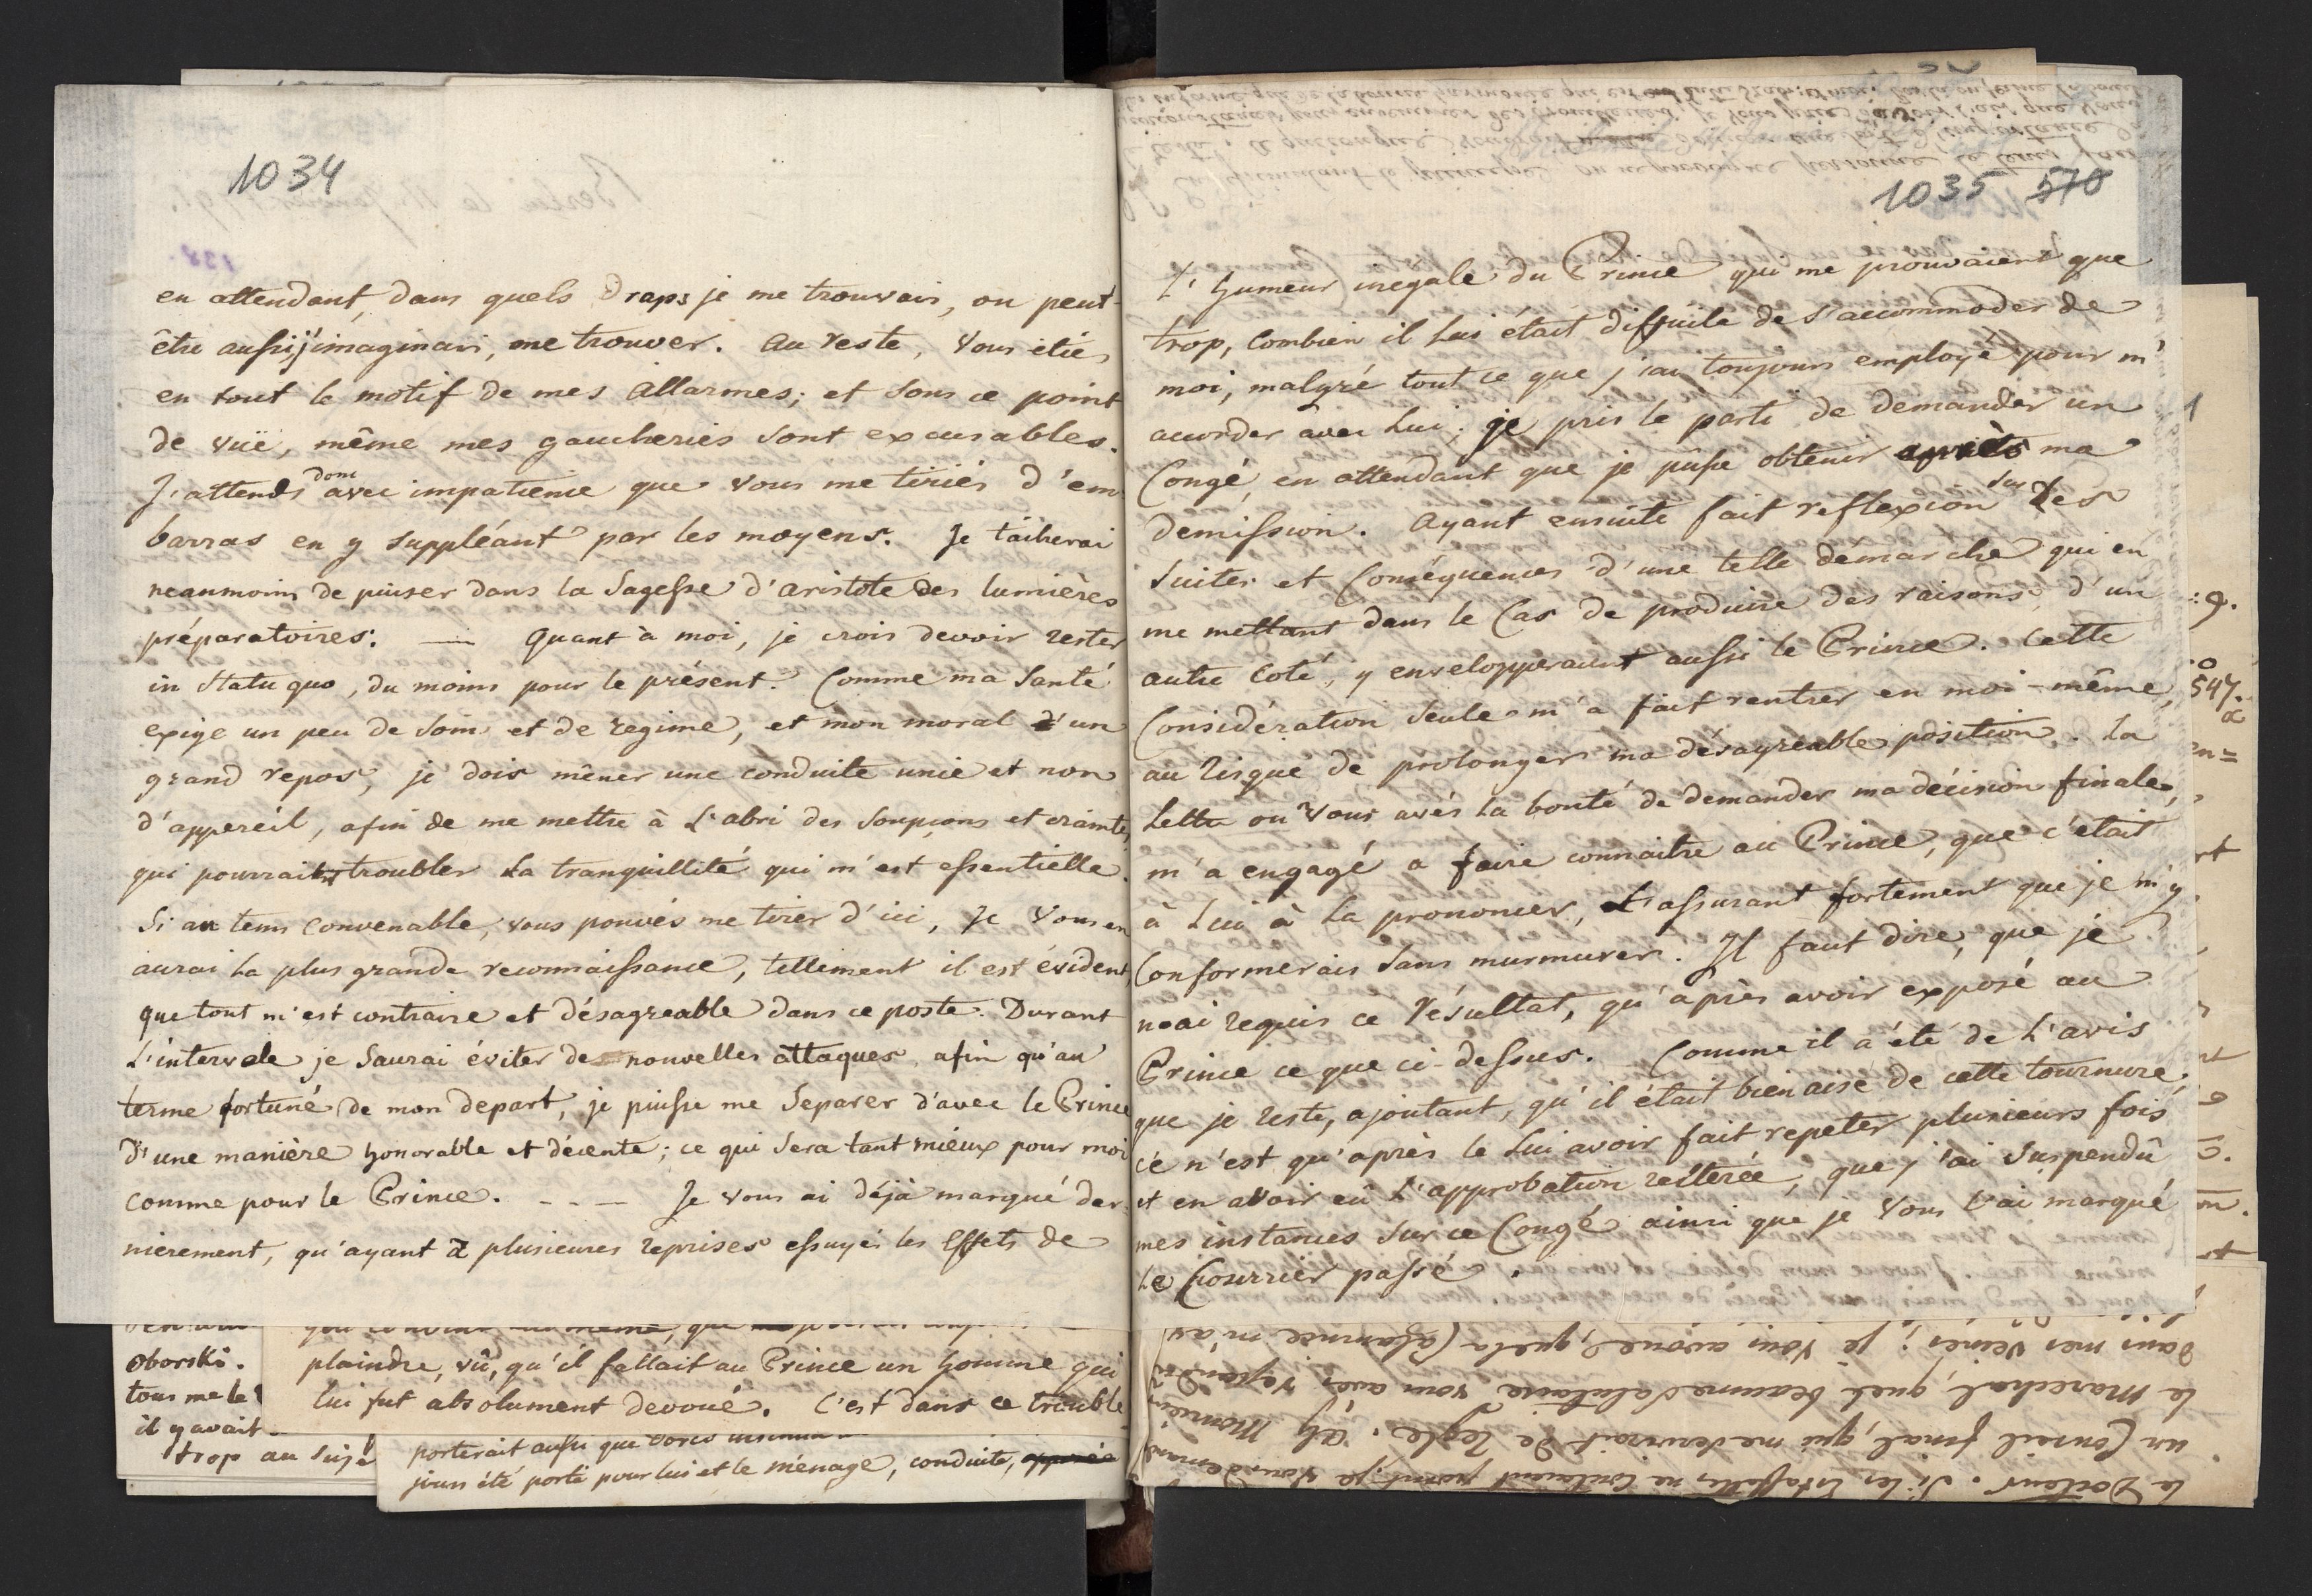 1034
en attendant, dans quels Draps je me trouvais, ou peut-
être aussi j'imaginais, me trouver. Au reste, Vous étiés
en tout le motif de mes allarmes; et sous ce point
de vuë, même mes gaucheries sont excusables.
J'attends donc avec impatience que vous me tiriés d'em
barras en y suppléant par les moyens. Je tâcherai
neanmoins de puiser dans la Sagesse d'aristote des lumières
préparatoires. — Quant à moi, je crois devoir rester
in Statu quo, du moins pour le présent. Comme ma Santé
exige un peu de Soin et de regime, et mon moral d'un
grand repos, je dois mêner une conduite unie et non
d'appereil, afin de me mettre à L'abri des Soupçons et craintes,
qui pourraient troubler La tranquillité qui m'est essentielle.
Si au tems Convenable, vous pouvés me tirer d'ici, Je Vous en
aurai La plus grande reconnaissance, tellement il est évident,
que tout m'est contraire et désagreable dans ce poste. Durant
L'intervale je Saurai éviter de nouvelles attaques afin qu'au
terme fortuné de mon depart, je puisse me Separer d'avec le Prince
d'une manière honorable et décente; ce qui Sera tant mieux pour moi
comme pour le Prince. - - — Je vous ai déjà marqué der
nierement, qu'ayant à plusieures reprises essuyés les Effets de
1035 570
L'humeur inegale du Prince qui me prouvaient que
trop, Combien il Lui était difficile de S'accommoder de
moi, malgré tout ce que j'ai toujours employé pour m'
accorder avec Lui; je pris le parti de demander un
Congé, en attendant que je pûsse obtenir après ma
demission. Ayant ensuite fait reflexion sur Les
Suites et Conséquences d'une telle démarche qui en
me mettant dans le Cas de produire des raisons, d'un
autre Coté, y envelopperaient aussi le Prince. Cette
Considération Seule m'a fait rentrer en moi-même,
au risque de prolonger ma désagreable position. La
Lettre ou Vous avés La bonté de demander ma décision finale,
m'a engagé a faire connaitre au Prince, que c'était
à Lui à La prononcer, L'assurant fortement que je m'y
Conformerais Sans murmurer. Il faut dire, que je
n'ai requis ce Résultat, qu'après avoir exposé au
Prince ce que ci-dessus. Comme il a été de L'avis
que je reste, ajoutant, qu'il était bien aise de cette tournure,
ce n'est qu'après le Lui avoir fait repeter plusieurs fois
et en avoir eû L'approbation reïterée, que j'ai Suspendû
mes instances Sur ce Congé ainsi que je Vous L'ai marqué
Le Courrier passé.
oborski.
tous me le
il y avait
trop au Suje
plaindre, vû, qu'il fallait au Prince un homme qui
lui fut absolument devoué. C'est dans ce trouble
porterait aussi que
jours été porté pour lui et le ménage, conduite,
le Docteur. Si les Estaffettes ne coutaient point, je vous demand
un Conseil final, qui me Servirait de regle. Ah Monsieur
le Marechal, quel beaume Salutaire vous avés repandu
dans mes veines; je Vous avoue, que la Calamnie m'av
1
547.